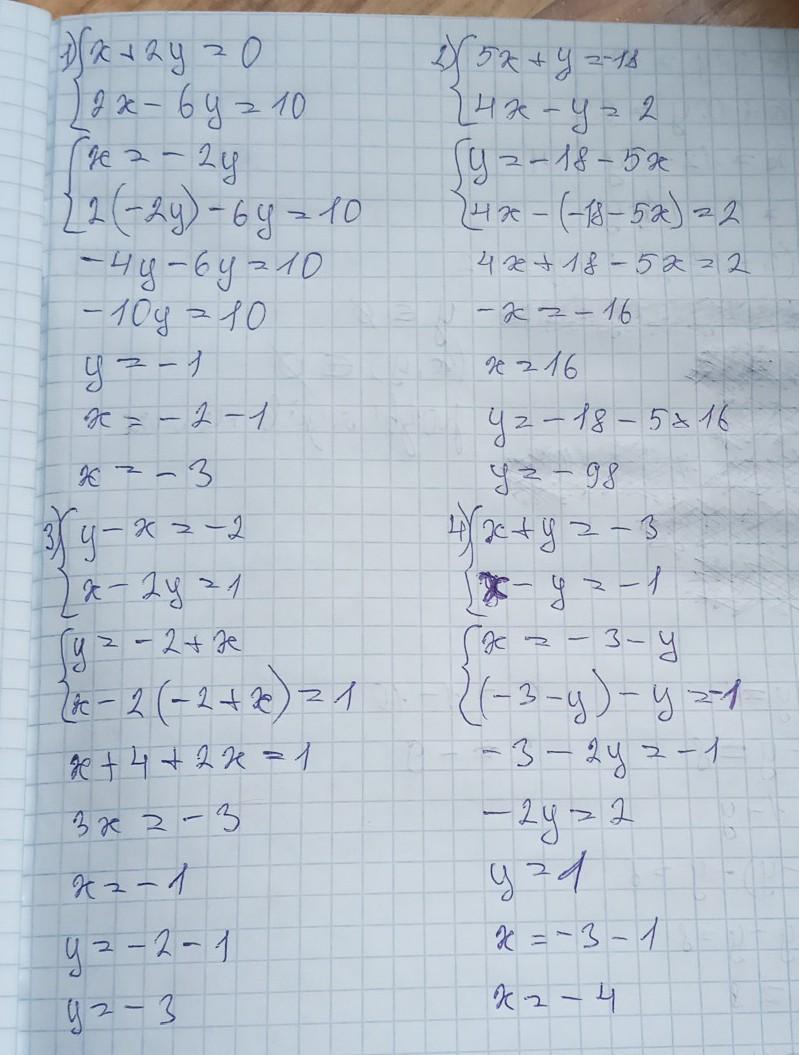 1) { x + 2y = 0
{ 2x - 6y = 10
{ x = - 2y
{ 2(-2y) - 6y = 10
-4y - 6y = 10
-10y = 10
y = -1
x = -2 - 1
x = -3
2) { 5x + y = -18
{ 4x - y = 2
{ y = -18 - 5x
{ 4x - (-18 - 5x) = 2
4x + 18 - 5x = 2
-x = -16
x = 16
y = -18 - 5 * 16
y = -98
3) { y - x = -2
{ x - 2y = 1
{ y = -2 + x
{ x - 2(-2 + x) = 1
x + 4 + 2x = 1
3x = -3
x = -1
y = -2 - 1
y = -3
4) { x + y = -3
{ x - y = -1
{ x = -3 - y
{ (-3 - y) - y = -1
-3 - 2y = -1
-2y = 2
y = 1
x = -3 - 1
x = -4